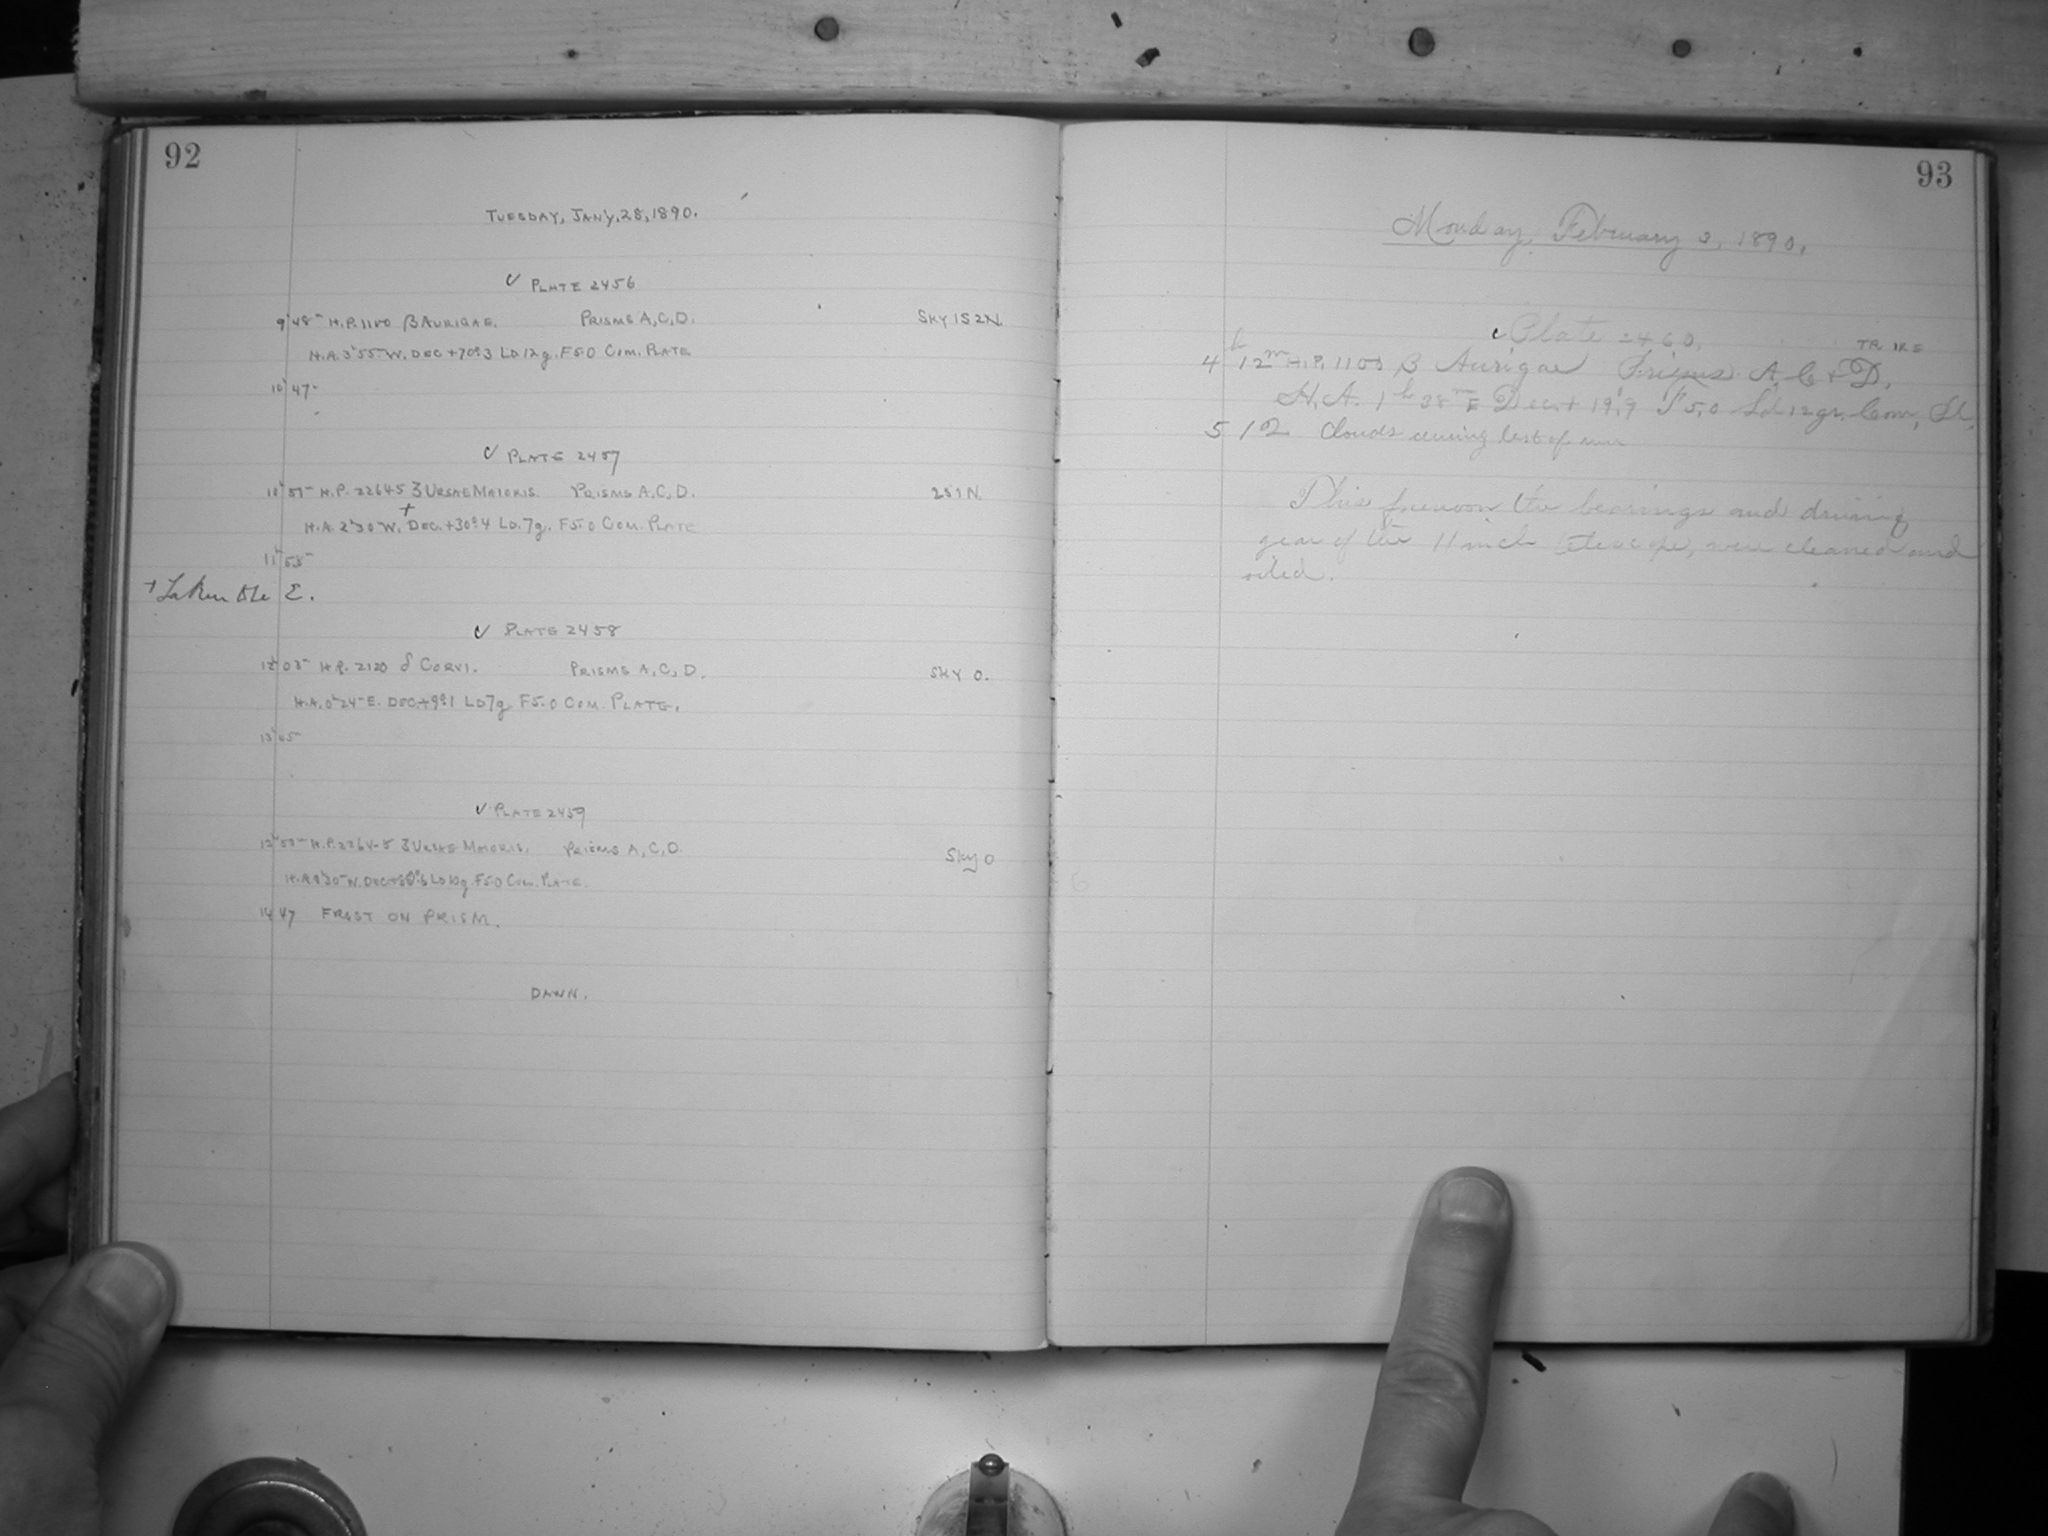 92
TUESDAY, JAN'Y, 28, 1890.
✓ PLATE 2456
9h 48m H.P. 1100 β AURIGAE. PRISMS A, C, D. SKY 1S 2N.
H.A. 3h 55m W. DEC +70°.3 LD 12g. F 5.0 COM. PLATE
10h 47m
✓ PLATE 2457
10h 57m H.P. 2264-5 ζ URSAE MAIORIS. PRISMS A, C, D. 2S 1 N.
H.A. 2h 30m W. + DEC. +30°.4 LD. 7g. F 5.0 COM. PLATE
11h 58m
+ Taken E.
✓ PLATE 2458
12h 03m H.P. 2120 δ CORVI. PRISMS A, C, D. SKY 0.
H.A. 0h 24m E. DEC. +9°.1 LD 7g. F 5.0 COM. PLATE.
13h 05m
✓ PLATE 2459
H.P. 2264-5 ζ URSAE MAIORIS. PRISMS A, C, D. SKY 0
H.A. W. DEC LD 10g. F 5.0 COM. PLATE.
14 47 FROST ON PRISM.
DAWN.
93
Monday, February 3, 1890.
✓ Plate 2460.
4h 12m H.P. 1100 β Aurigae Prisms A, C & D.
H.A. 1h 38m E Dec. + 19°.9 F 5.0 Ld 12gr. Com. Pl.
5 12 Clouds during last of run
This forenoon the bearings and driving
gear of the 11 inch telescope, were cleaned and
oiled.